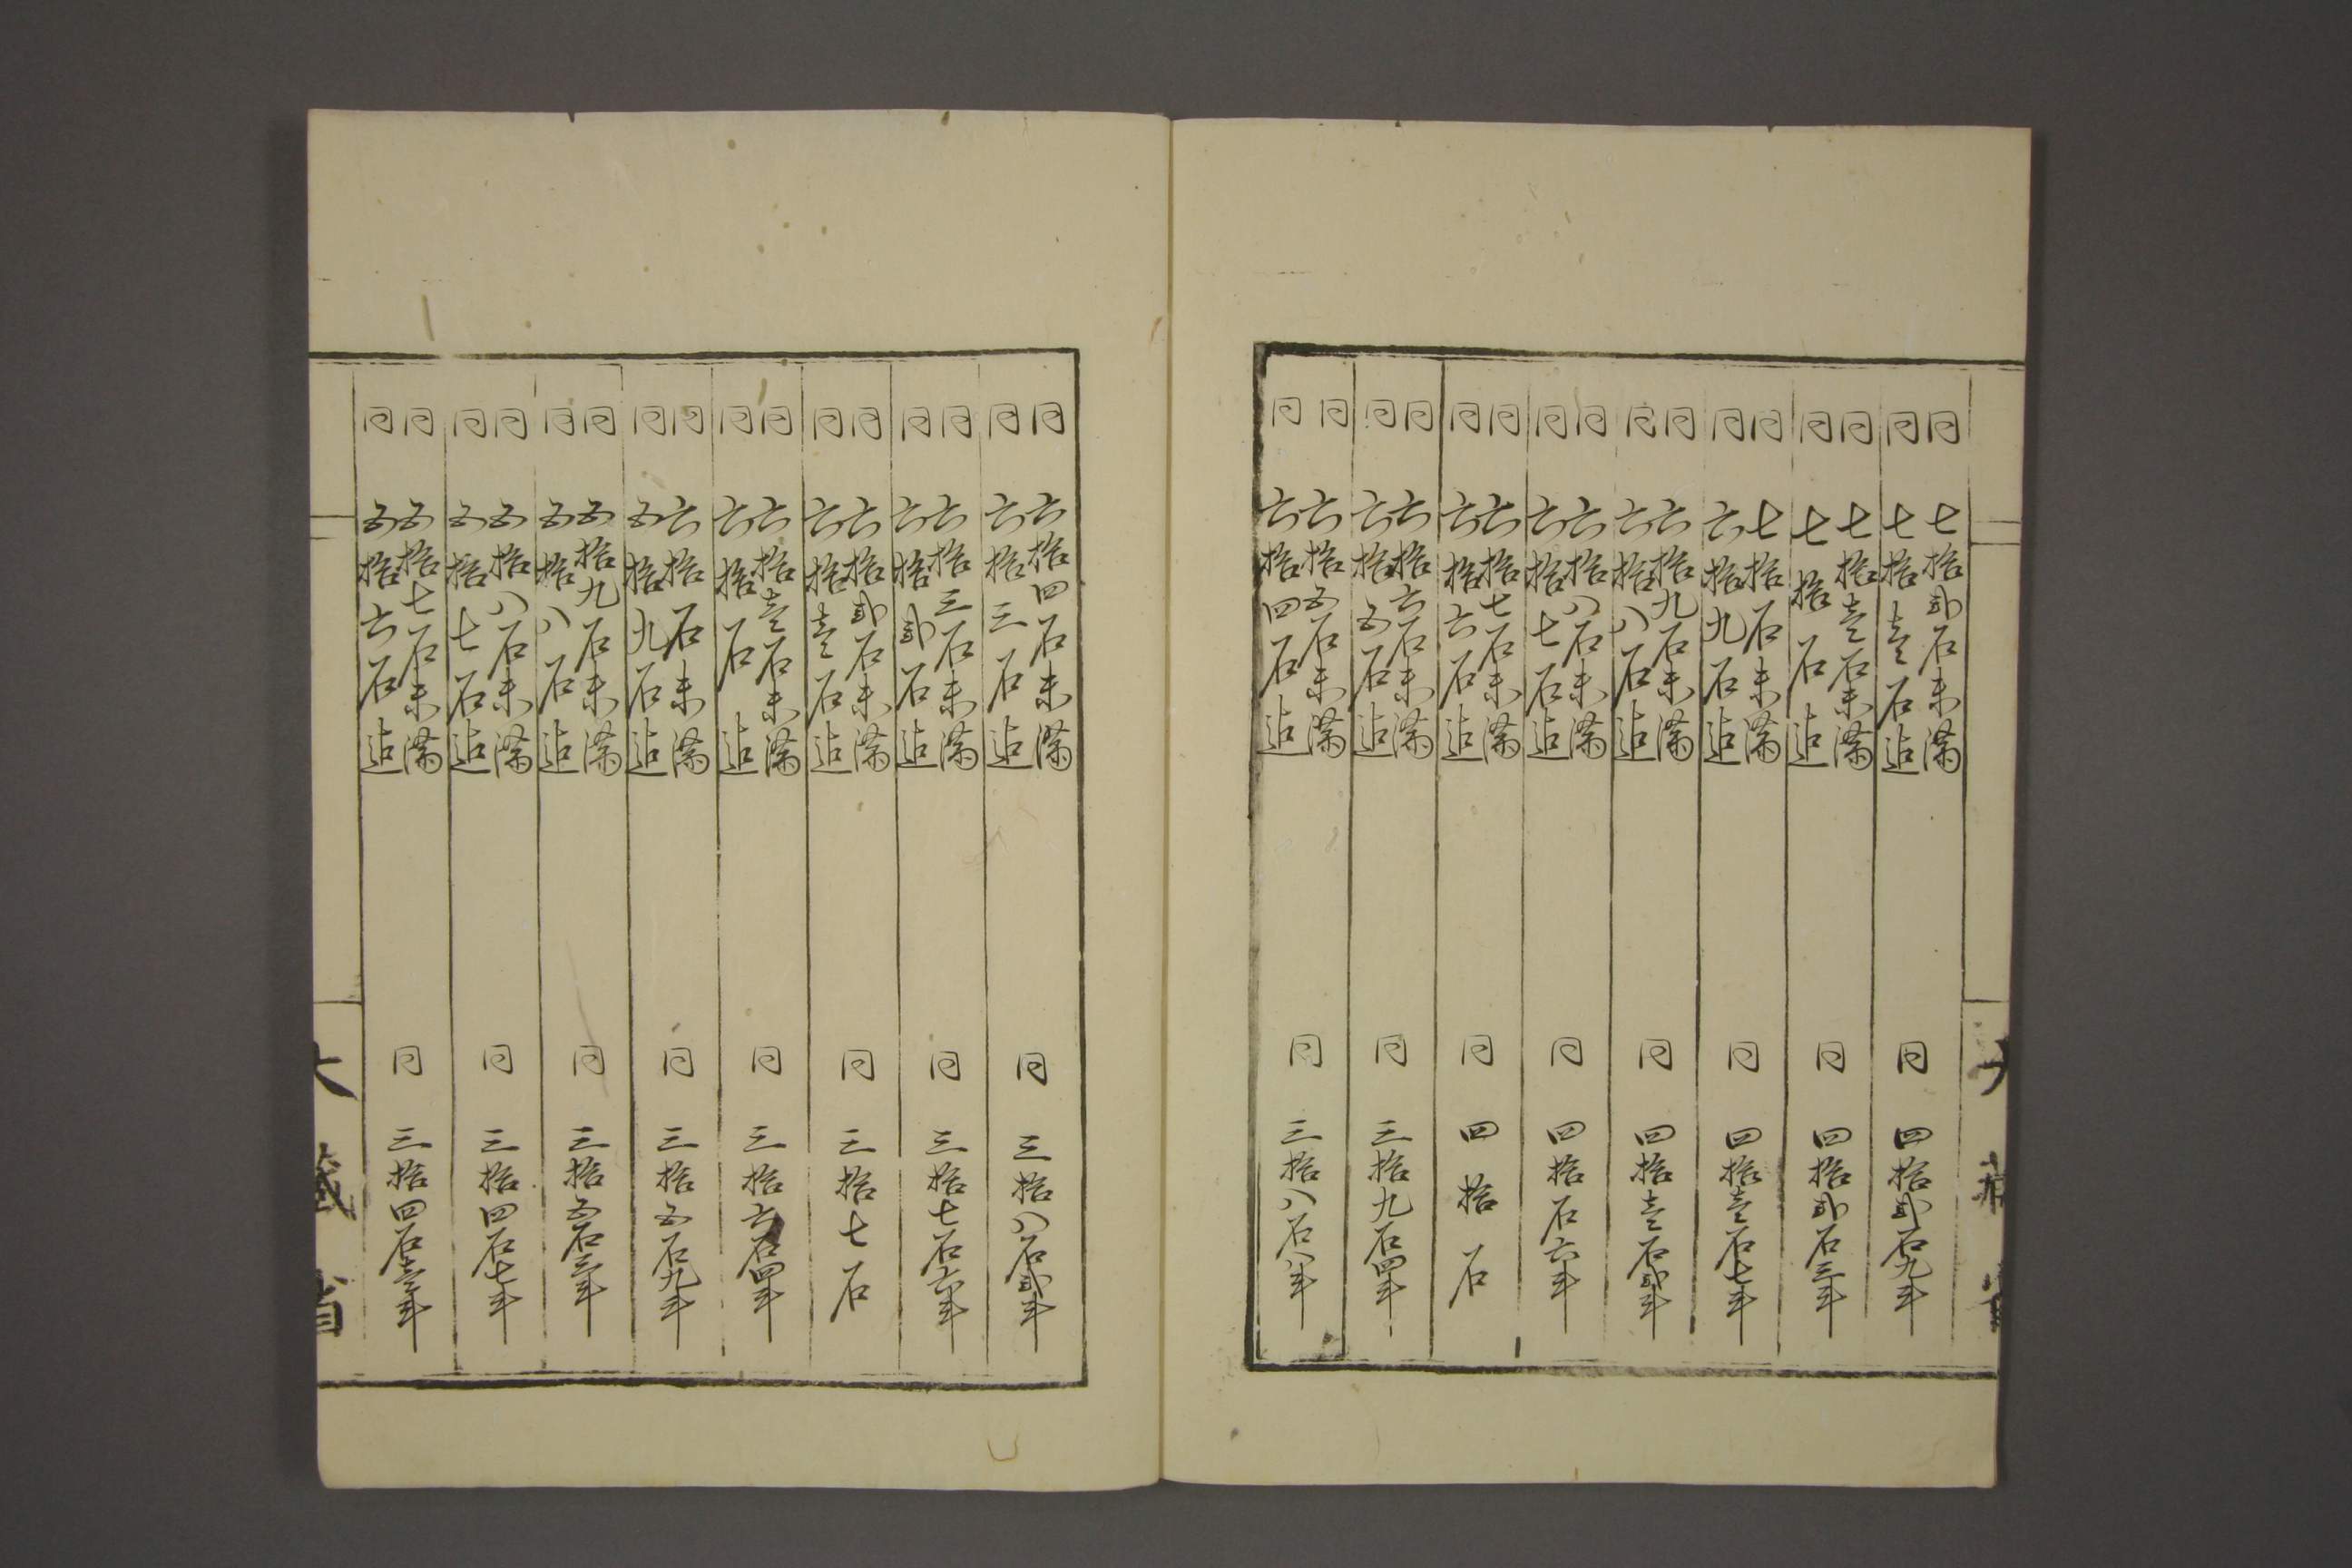 同 七拾弐石未満
同 七拾壱石迠
同 四拾弐石九斗
同 七拾壱石未満
同 七拾石迠
同 四拾弐石三斗
同 七拾石未満
同 六拾九石迠
同 四拾壱石七斗
同 六拾九石未満
同 六拾八石迠
同 四拾壱石弐斗
同 六拾八石未満
同 六拾七石迠
同 四拾石六斗
同 六拾七石未満
同 六拾六石迠
同 四拾石
同 六拾六石未満
同 六拾五石迠
同 三拾九石四斗
同 六拾五石未満
同 六拾四石迠
同 三拾八石八斗
同 六拾四石未満
同 六拾三石迠
同 三拾八石弐斗
同 六拾三石未満
同 六拾弐石迠
同 三拾七石六斗
同 六拾弐石未満
同 六拾壱石迠
同 三拾七石
同 六拾壱石未満
同 六拾石迠
同 三拾六石四斗
同 六拾石未満
同 五拾九石迠
同 三拾五石九斗
同 五拾九石未満
同 五拾八石迠
同 三拾五石三斗
同 五拾八石未満
同 五拾七石迠
同 三拾四石七斗
同 五拾七石未満
同 五拾六石迠
同 三拾四石壱斗
大藏省